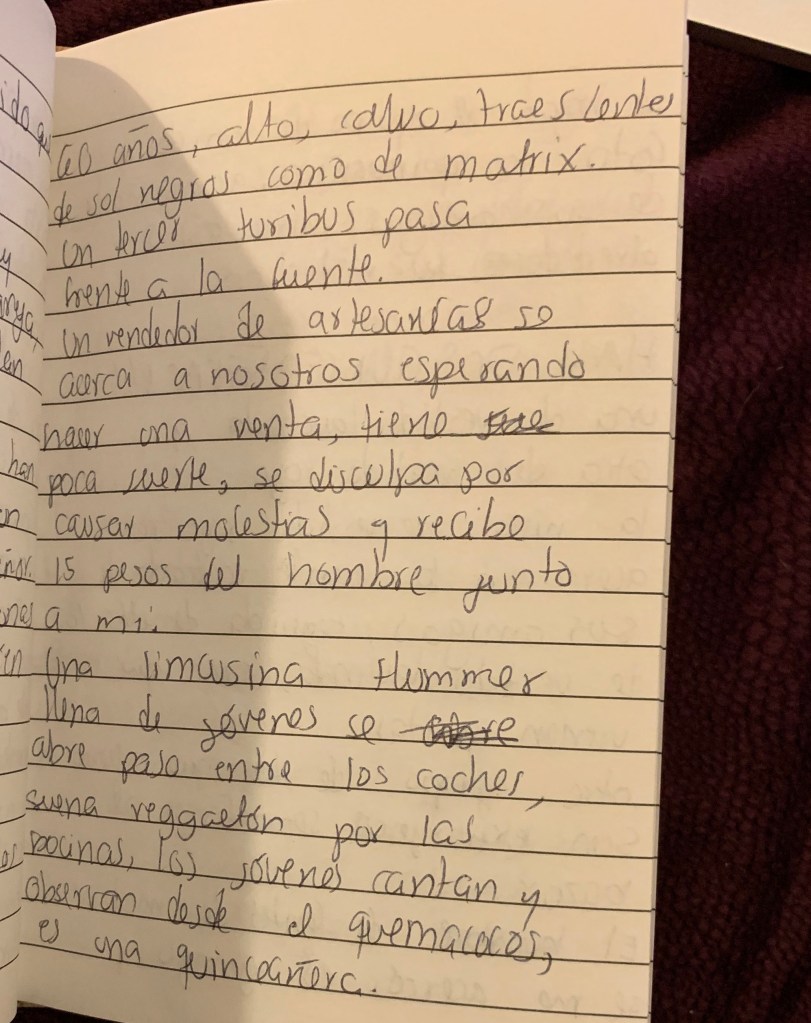 60 años, alto, calvo, traes lentes
de sol negros como de matrix.
Un tercer turibus pasa
frente a la fuente.
Un vendedor de artesanías se
acerca a nosotros esperando
hacer una venta, tiene
poca suerte, se disculpa por
causar molestias y recibe
15 pesos del hombre junto
a mi.
Una limusina Hummer
llena de jóvenes se
abre paso entre los coches,
suena reggaetón por las
bocinas, los jóvenes cantan y
observan desde el quemacocos,
es una quinceañera.